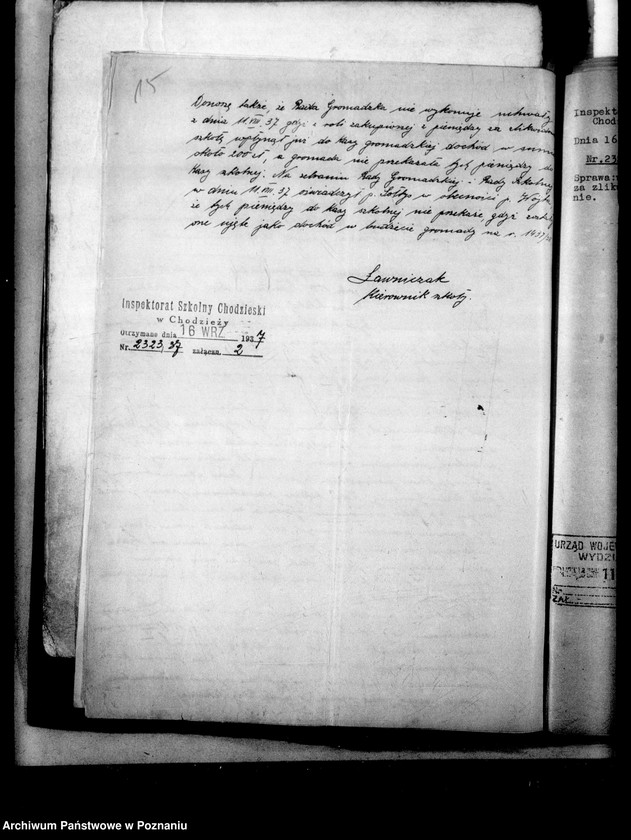 15
Donoszę także, że Rada Gromadzka nie wykonuje uchwały
z dnia 11.VIII.37 gdyż z roli zakupionej z pieniędzy za zlikwidow
szkołę wpłynął już do kasy gromadzkiej dochód w sumie
około 200 zł, a gromada nie przekazała tych pieniędzy do
kasy szkolnej. Na zebraniu Rady Gromadzkiej i Rady Szkolnej
w dniu 11.VIII.37 oświadczył p. Sołtys w obecności p. Wójta,
że tych pieniędzy do kasy szkolnej nie przekaże gdyż
one ujęte jako dochód w budżecie gromady na r. 1937/38
Ławniczak
Kierownik szkoły.
Inspektorat Szkolny Chodzieski
w Chodzieży
Otrzymano dnia 16 WRZ. 1937
Nr. 2323/37 załączn. 2
Inspekt
Chod
Dnia 16
Nr.23
Sprawa:
za zlik
nie.
URZĄD WOJE
WYDZI
11
Nr.
ZAŁ.
Archiwum Państwowe w Poznaniu